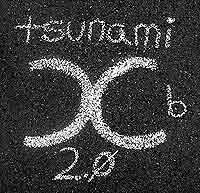 tsunami
X b
2.0